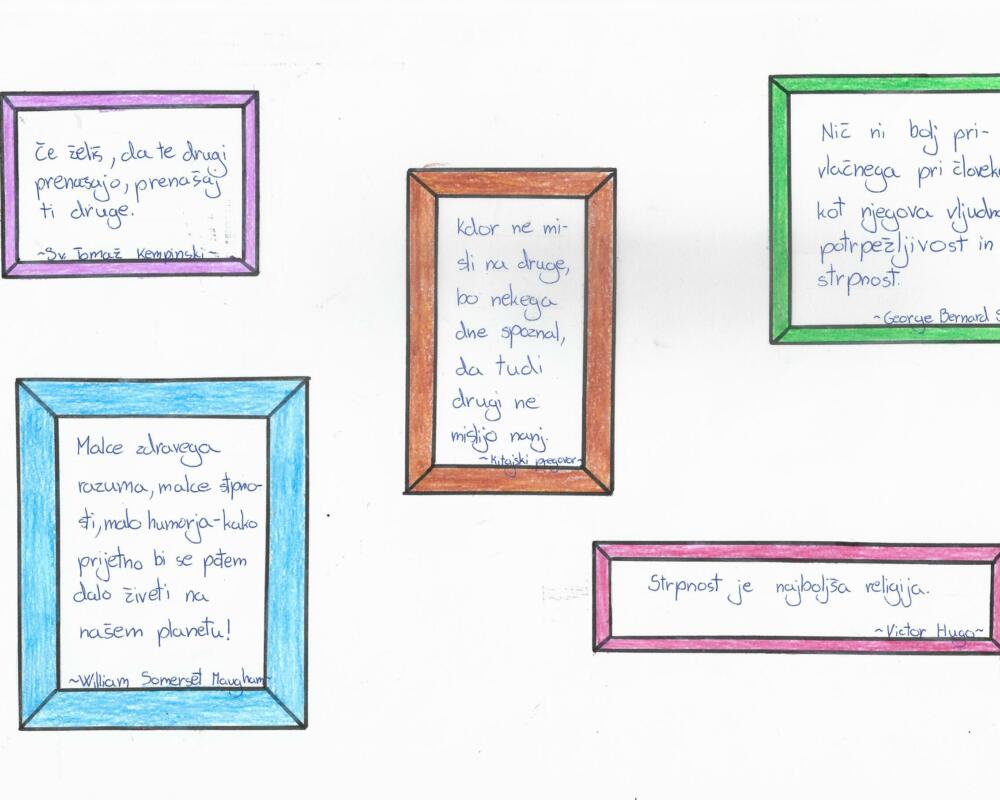 Če želiš, da te drugi
prenašajo, prenašaj
ti druge.
~Sv. Tomaž Kempinski~
Malce zdravega
razuma, malce strpno-
sti, malo humorja-kako
prijetno bi se potem
dalo živeti na
našem planetu!
~William Somerset Maugham~
Kdor ne mi-
sli na druge,
bo nekega
dne spoznal,
da tudi
drugi ne
mislijo nanj.
~Kitajski pregovor~
Nič ni bolj pri-
vlačnega pri človeku
kot njegova
potrpežljivost in
strpnost.
~George Bernard
Strpnost je najboljša religija.
~Victor Hugo~